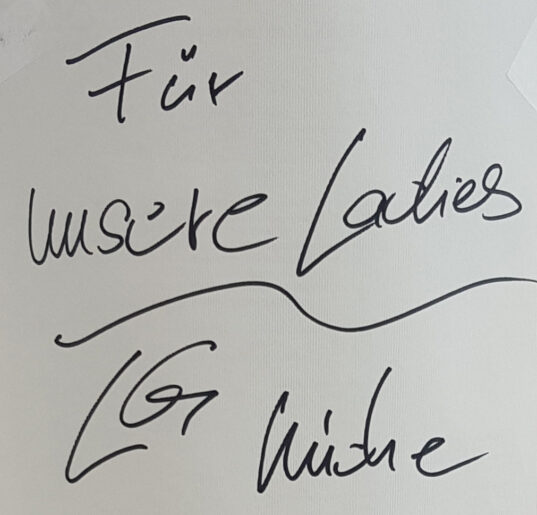 Für
unsere Ladies
LG